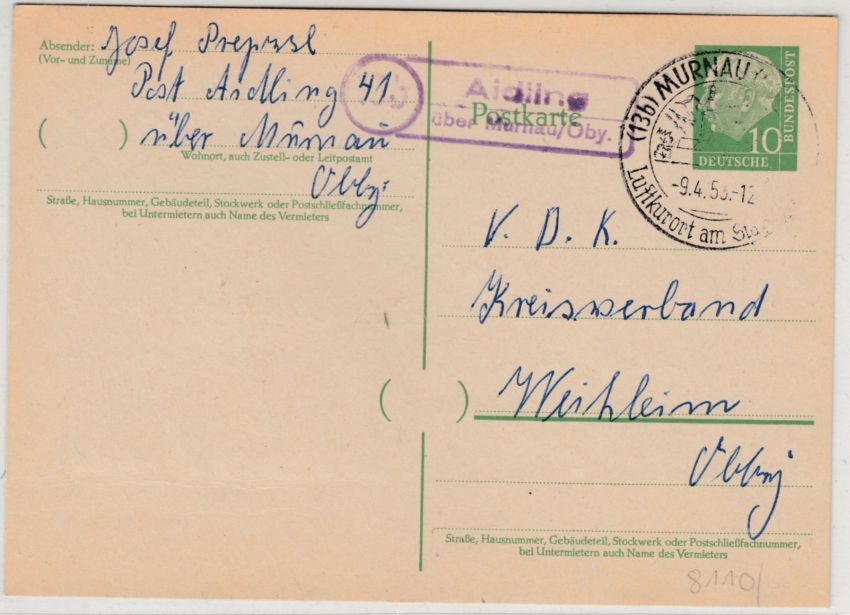 Absender: Josef
(Vor- und Zuname)
Post Aidling 41
( ) über Murnau
Wohnort, auch Zustell- oder Leitpostamt
Obby.
Straße, Hausnummer, Gebäudeteil, Stockwerk oder Postschließfachnummer,
bei Untermietern auch Name des Vermieters
13b
Aidling
über Murnau/Oby.
Postkarte
(13b) MURNAU
-9.4.5
Luftkurort am
10
DEUTSCHE
BUNDESPOST
V. D. K.
Kreisverband
( ) Weilheim
Obby
Straße, Hausnummer, Gebäudeteil, Stockwerk oder Postschließfachnummer,
bei Untermietern auch Name des Vermieters
8110/-